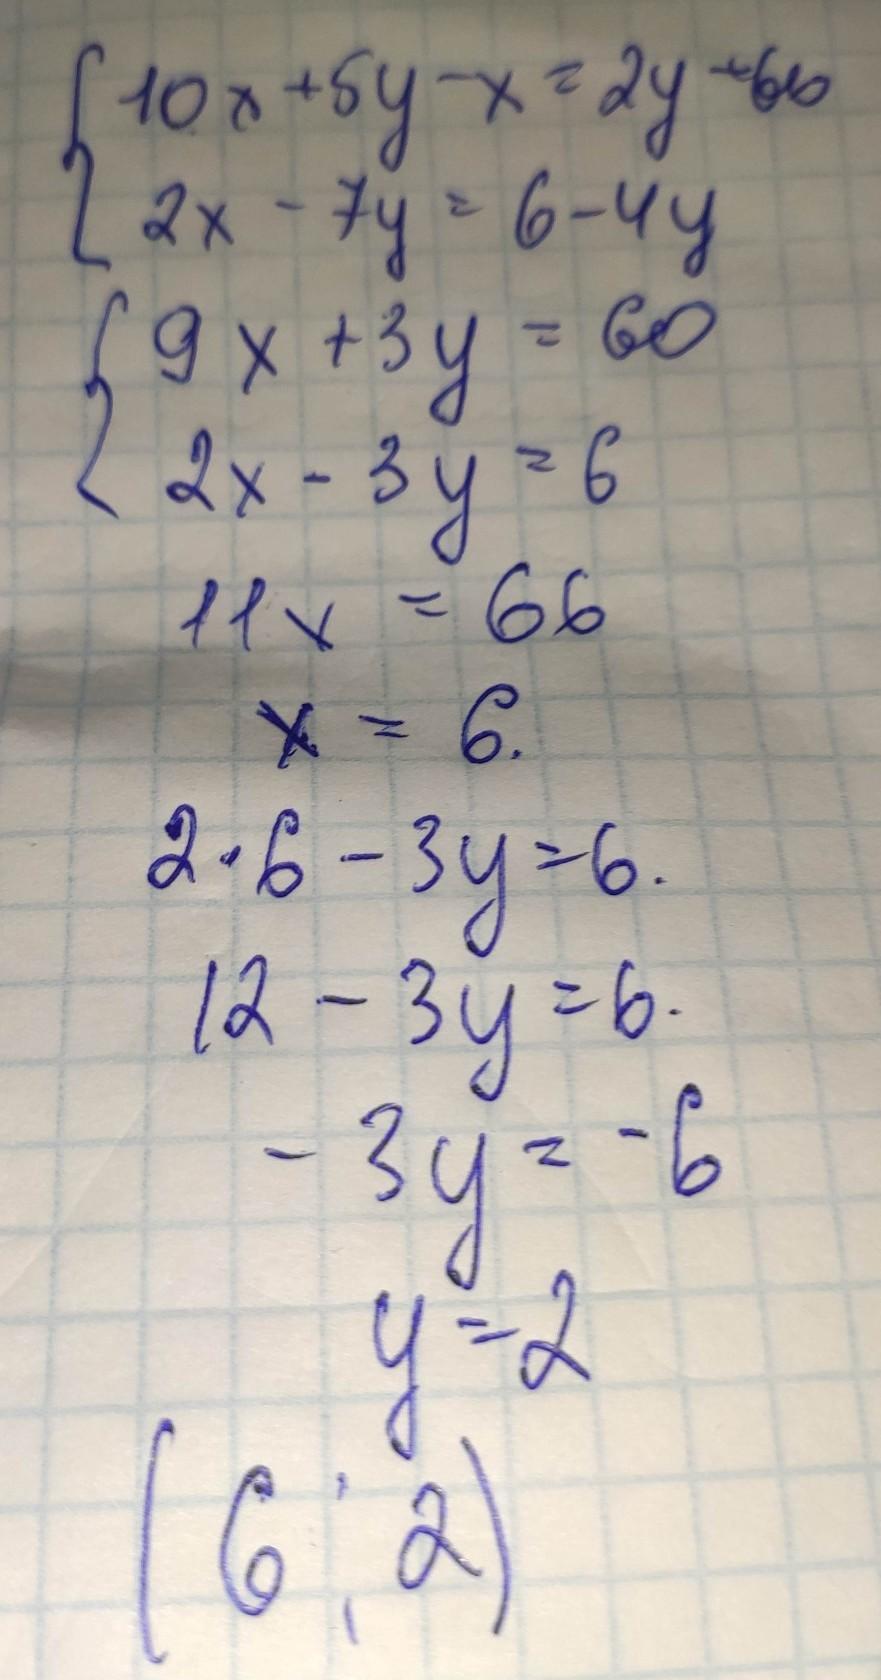 {10x + 5y - x = 2y + 60
2x - 7y = 6 - 4y
{9x + 3y = 60
2x - 3y = 6
11x = 66
x = 6.
2 · 6 - 3y = 6.
12 - 3y = 6.
- 3y = - 6
y = 2
(6 ; 2)